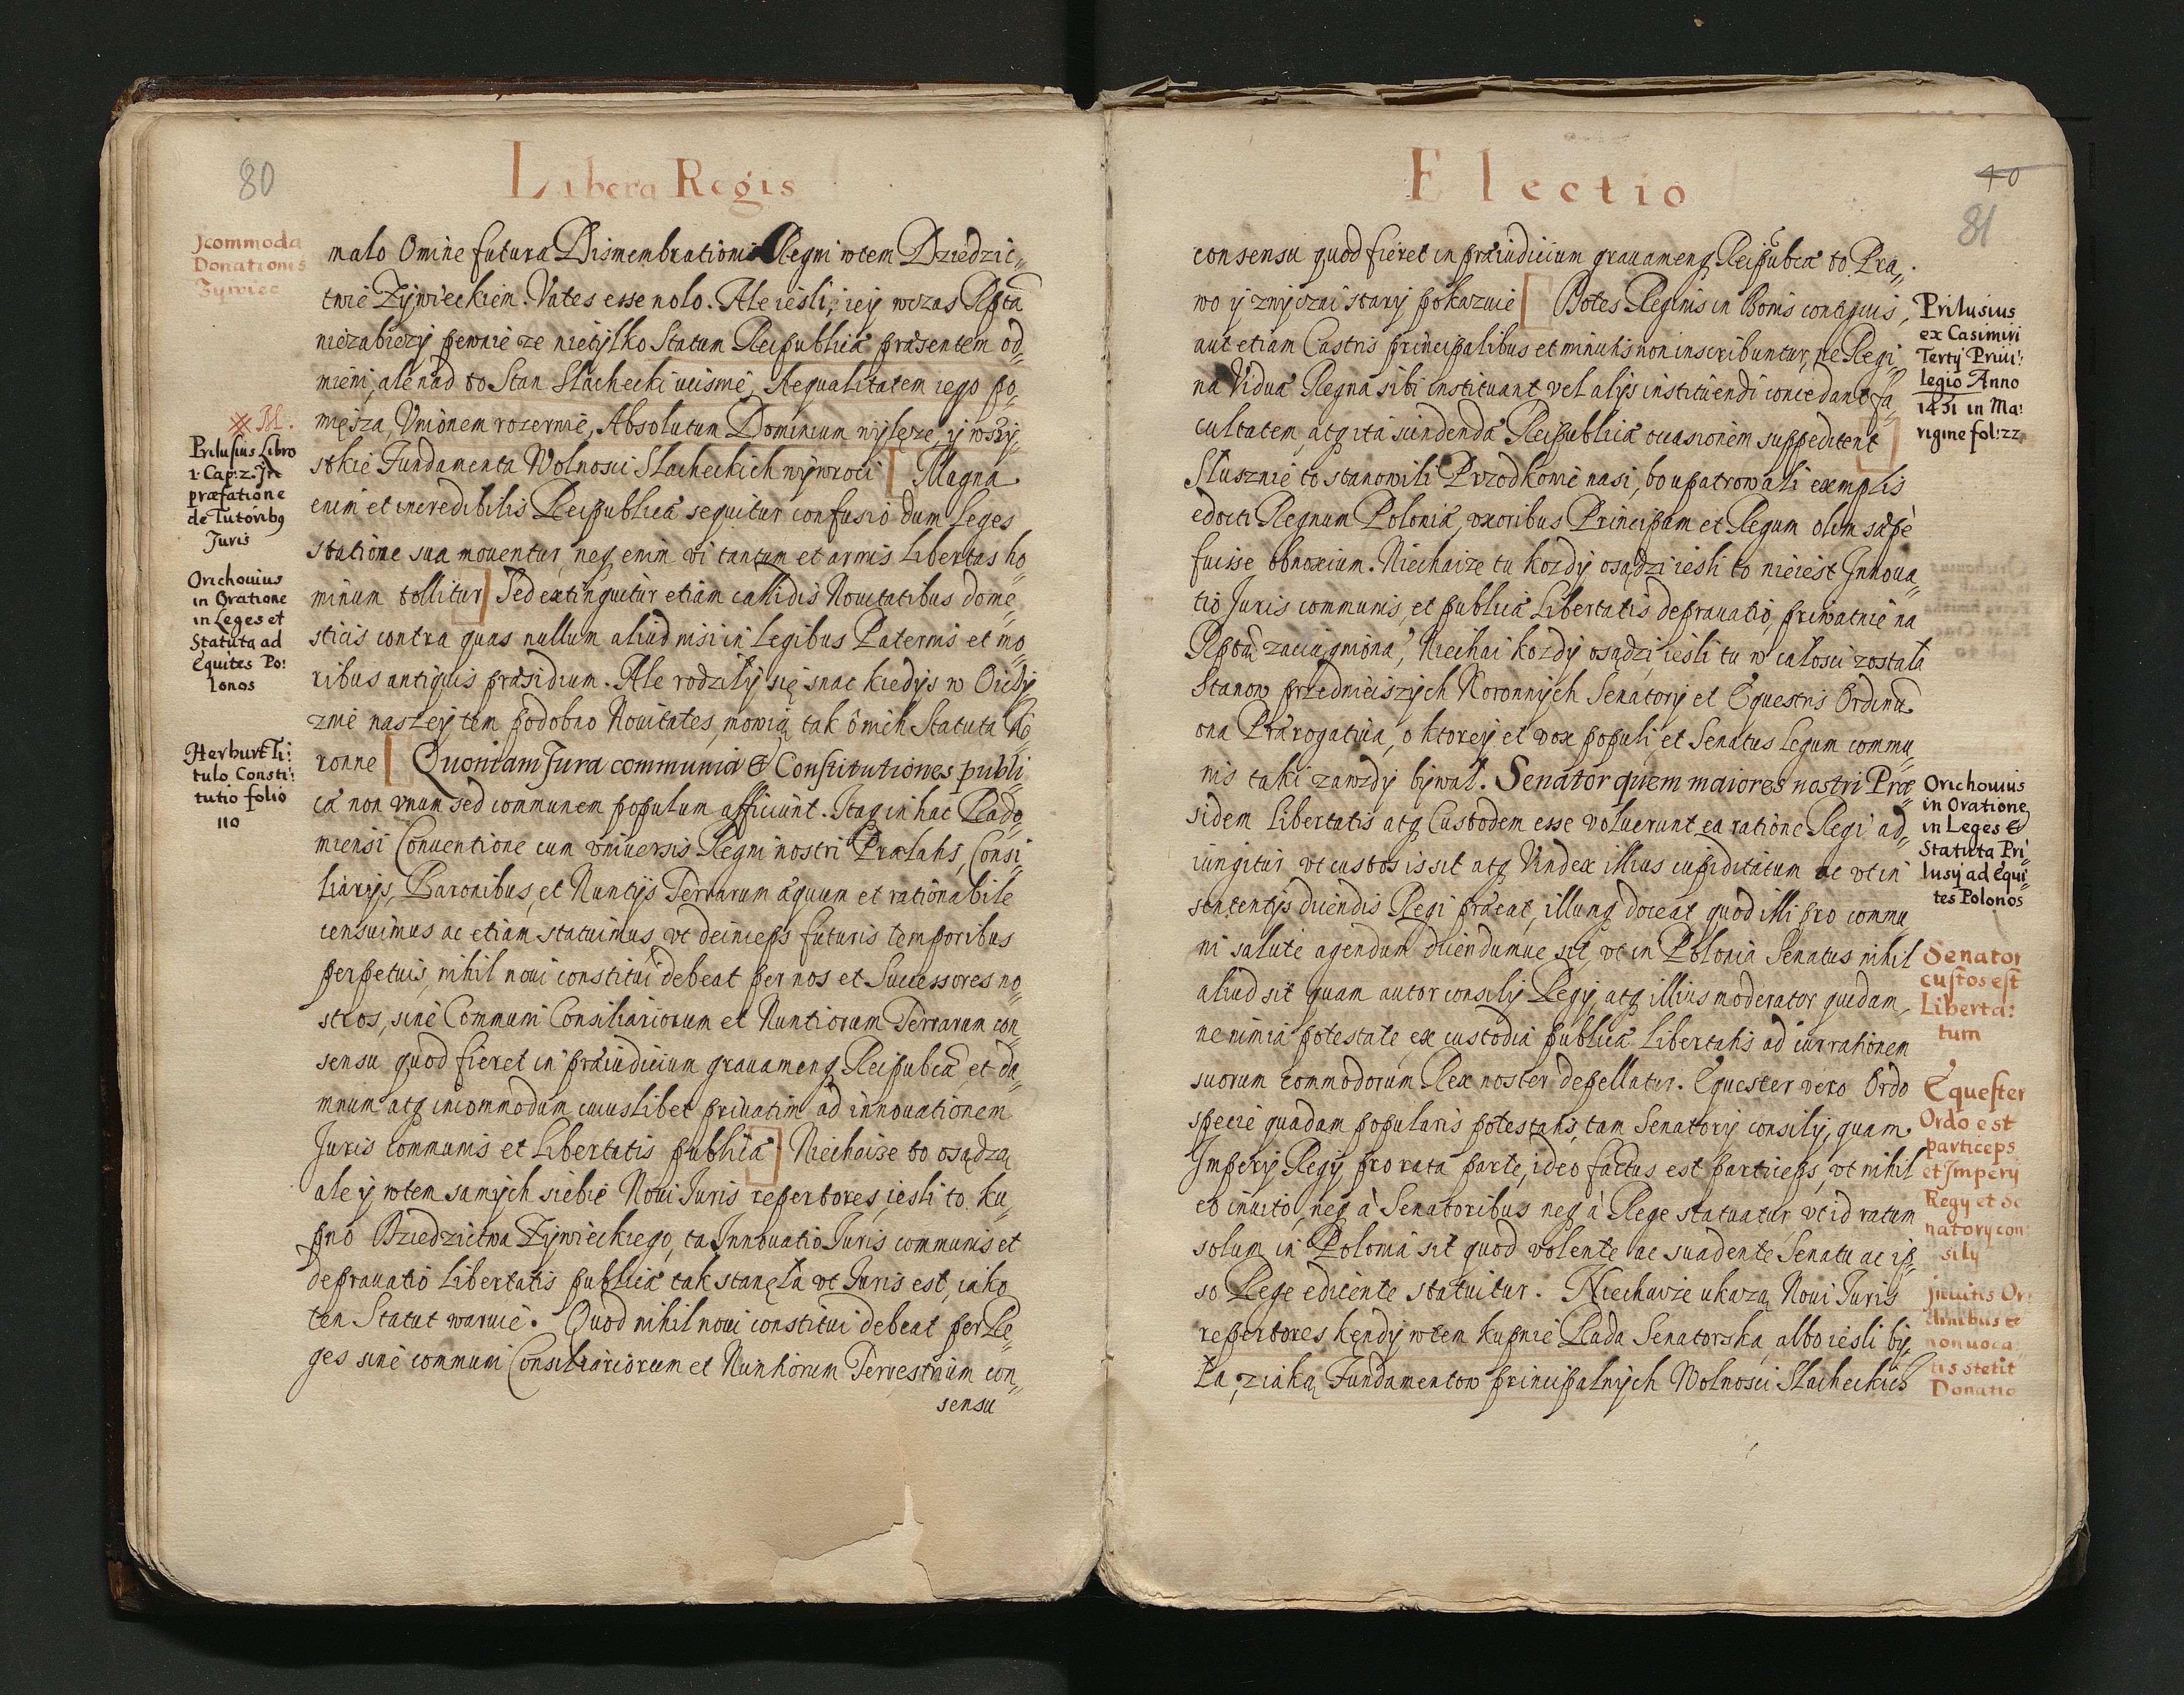 80
Libera Regis
Jcommoda
Donationis
Zywiec
malo Omine futura Dismembrationis Regni wtem Dziedzic„
twie Zÿwieckiem. Vates esse nolo. Ale iesli, ieÿ wczas Rpta
niezabiezÿ pewnie ze nietÿlko Statum Reipublicæ præsentem od„
mieni, ale nad to Stan Slachecki ucisnie, Aequalitatem iego po„
miesza, Vnionem rozerwie, Absolutum Dominium wÿleze, ÿ wszÿ„
stkie Fundamenta Wolnosci Slacheckich wÿwroci [ Magna
enim et incredibilis Reipublicæ sequitur confusio dum Leges
statione sua mouentur, neq enim vi tantum et armis Libertas ho„
minum tollitur] Sed extinguitur etiam callidis Nouitatibus dome„
sticis contra quas nullum aliud nisi in Legibus Paternis et mo„
ribus antiquis præsidium. Ale rodzilÿ się snac kiedÿs w Oiczÿ„
znie naszeÿ tem podobno Nouitates, mowią tak o nich Statuta Ko„
ronne [ Quoniam Jura communia & Constitutiones publi„
cæ non vnum sed communem populum afficiunt. Itaq in hac Rado„
miensi Conuentione cum vniuersis Regni nostri Prælatis, Consi„
liarijs, Baronibus, et Nuntijs Terrarum æquum et rationabile
censuimus ac etiam statuimus, vt deinceps futuris temporibus
perpetuis, nihil noui constitui debeat per nos et Successores no„
stros, sine Communi Consiliariorum et Nuntiorum Terrarum con„
sensu quod fieret in præiudicium grauamenq Reipubcæ, et da„
mnum atq incommodum cuiuslibet priuatim ad innouationem
Juris communis et Libertatis publicæ] Niechaize to osądzą
ale ÿ wtem samÿch siebie Noui Juris repertores, iesli to ku„
pno Dziedzictwa Zÿwieckiego, ta Innouatio Juris communis et
deprauatio Libertatis publicæ tak stanęła vt Juris est, iako
ten Statut waruie. Quod nihil noui constitui debeat per Re„
ges sine communi Consiliariorum et Nuntiorum Terrestrium con„
sensu
M.
Prilusius Libro
1. Cap: 2. In
præfatione
de Tutoribq
Juris
Orichouius
in Oratione
in Leges et
Statuta ad
Equites Po:
lonos
Herburt Ti:
tulo Consti:
tutio folio
110
Electio
40
81
consensu quod fieret in præiudicium grauamenq Reipubcæ to Pra„
wo ÿ zwÿczai starÿ pokazuie [ Dotes Reginis in Bonis contiguis,
aut etiam Castris principalibus et minutis non inscribuntur, ne Regi„
na Vidua Regna sibi instituant vel alijs instituendi concedant fa„
cultatem, atq ita scindendæ Reipublicæ occasionem suppeditent ]
Slusznie to stanowili Przodkowie nasi, bo upatrowali exemplis
edocti Regnum Poloniæ, vxoribus Principum et Regum olim sæpe
fuisse obnoxium. Niechaize tu kozdÿ osądzi iesli to nieiest Innoua„
tio Juris communis, et publicæ Libertatis deprauatio, priwatnie na
Rptą zaciągniona, Niechai kozdÿ osądzi iesli tu w całosci została
Stanow przednieiszÿch Koronnÿch Senatorÿ et Equestris Ordinis
ona Prærogatiua, o ktoreÿ et vox populi, et Senatus Legum commu„
nis taki zawzdÿ bÿwał. Senator quem maiores nostri Præ„
sidem Libertatis atq Custodem esse voluerunt ea ratione Regi ad„
iungitur vt custos is sit atq Vindex illius cupiditatum ac vt in
sententijs dicendis Regi præeat, illunq doceat quod illi pro commu„
ni salute agendum dicendumue sit, vt in Polonia Senatus nihil
aliud sit quam autor consilij Regij, atq illius moderator quidam,
ne nimia potestate ex custodia publicæ Libertatis ad curationem
suorum commodorum Rex noster depellatur. Equester vero Ordo
specie quadam popularis potestatis, tam Senatorij consilij, quam
Imperij Regij pro rata parte, ideo factus est particeps, vt nihil
eo inuito, neq à Senatoribus neq à Rege statuatur, vt id ratum
solum in Polonia sit quod volente ac suadente Senatu ac ip„
so Rege edicente statuitur. Niechaize ukazą Noui Juris
repertores, kędÿ wtem kupnie Rada Senatorska, albo iesli bÿ„
ła, z iaką Fundamentow principalnÿch Wolnosci Slacheckich
Prilusius
ex Casimiri
Tertÿ Priui:
legio Anno
1451 in Ma:
rigine fol: 22.
Orichouius
in Oratione
in Leges &
Statuta Pri„
lusÿ ad Equi„
tes Polonos
Senator
custos est
Liberta:
tum
Equester
Ordo est
particeps
et Imperÿ
Regÿ et Se
natorÿ con:
silÿ
Inuitis Or:
dinibus et
non uoca
tis stetit
Donatio